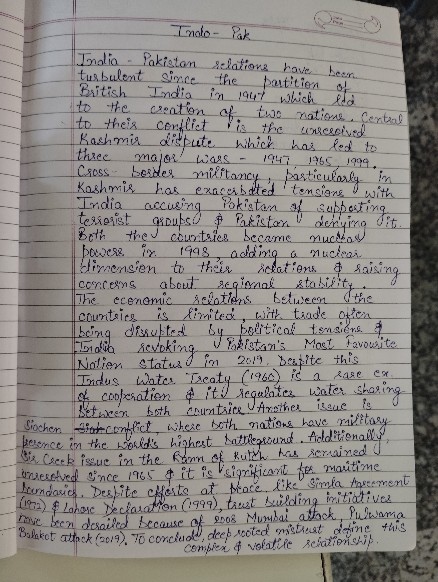 Indo - Pak
India - Pakistan relations have been
turbulent since the partition of
British India in 1947 which led
to the creation of two nations. Central
to their conflict is the unresolved
Kashmir dispute which has led to
three major wars - 1947, 1965, 1999.
Cross-border militancy, particularly in
Kashmir has exacerbated tensions with
India accusing Pakistan of supporting
terrorist groups & Pakistan denying it.
Both the countries became nuclear
powers in 1998 adding a nuclear
dimension to their relations & raising
concerns about regional stability.
The economic relations between the
countries is limited, with trade often
being disrupted by political tensions &
India revoking Pakistan's Most Favourite
Nation status in 2019. Despite this
Indus Water Treaty (1960) is a rare ex.
of cooperation & it regulates water sharing
between both countries. Another issue is
Siachen conflict, where both nations have military
presence in the world's highest battleground. Additionally,
Sir Creek issue in the Rann of Kutch has remained
unresolved since 1965 & it is significant for maritime
boundaries. Despite efforts at peace like Simla Agreement
(1972) & Lahore Declaration (1999), trust building initiatives
have been derailed because of 2008 Mumbai attack, Pulwama
Balakot attack (2019). To conclude, deep rooted mistrust define this
complex & volatile relationship.